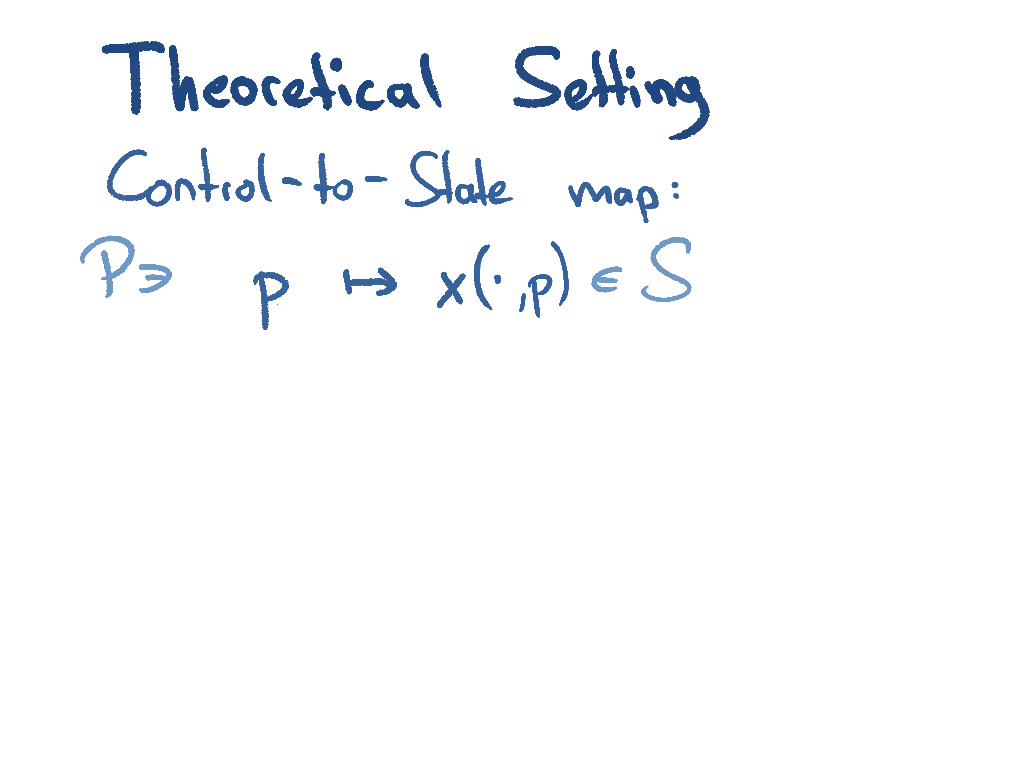 Theoretical Setting
Control-to-State map:
P∋ p ↦ x(·,p) ∈ S